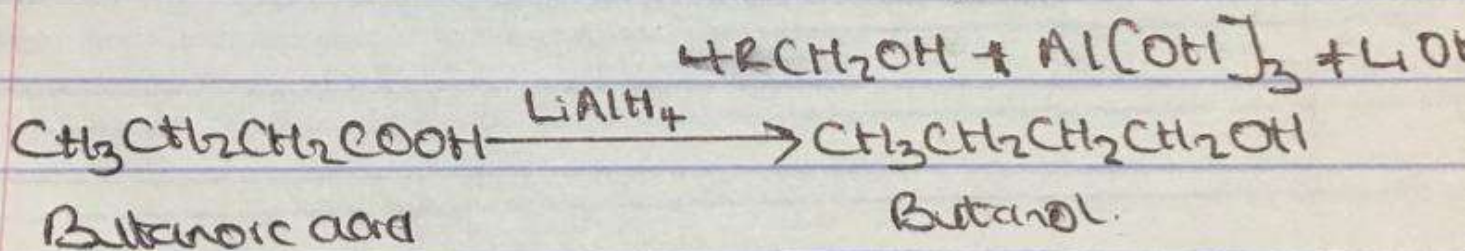 4RCH₂OH + Al[OH]₃ + LiOH
CH₃CH₂CH₂COOH —LiAlH₄→ CH₃CH₂CH₂CH₂OH
Butanoic acid Butanol.